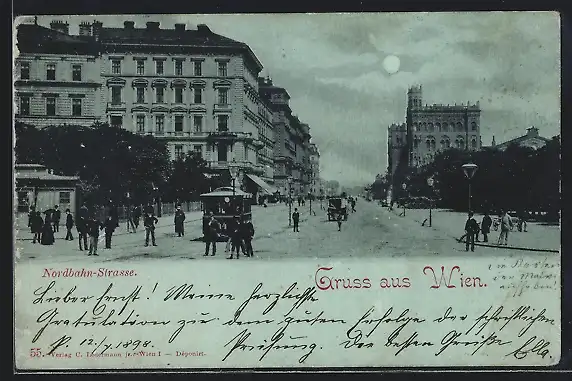 Nordbahn-Strasse.
Gruss aus Wien.
Lieber Ernst! Meine herzlichste
Gratulation zu dem guten Erfolge der schriftlichen
P. 12./V 1898. Prüfung. Die besten Grüße
55. Verlag C. Ledermann jr. Wien I — Déponirt.